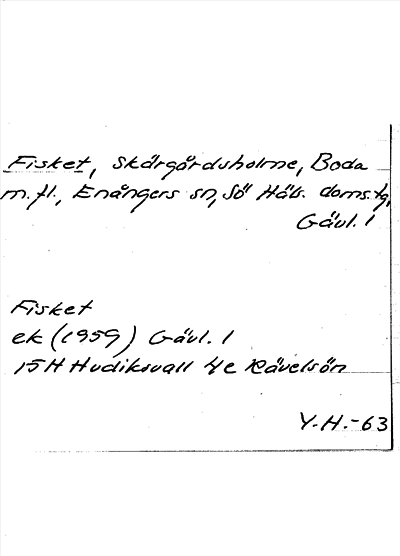 Fisket, Skärgårdsholme, Boda
m.fl., Enångers sn, Sö Häls. doms.tg,
Gävl. l
Fisket
ek (1959) Gävl. l
15H Hudiksvall 4e Rävelsön
Y.H.-63